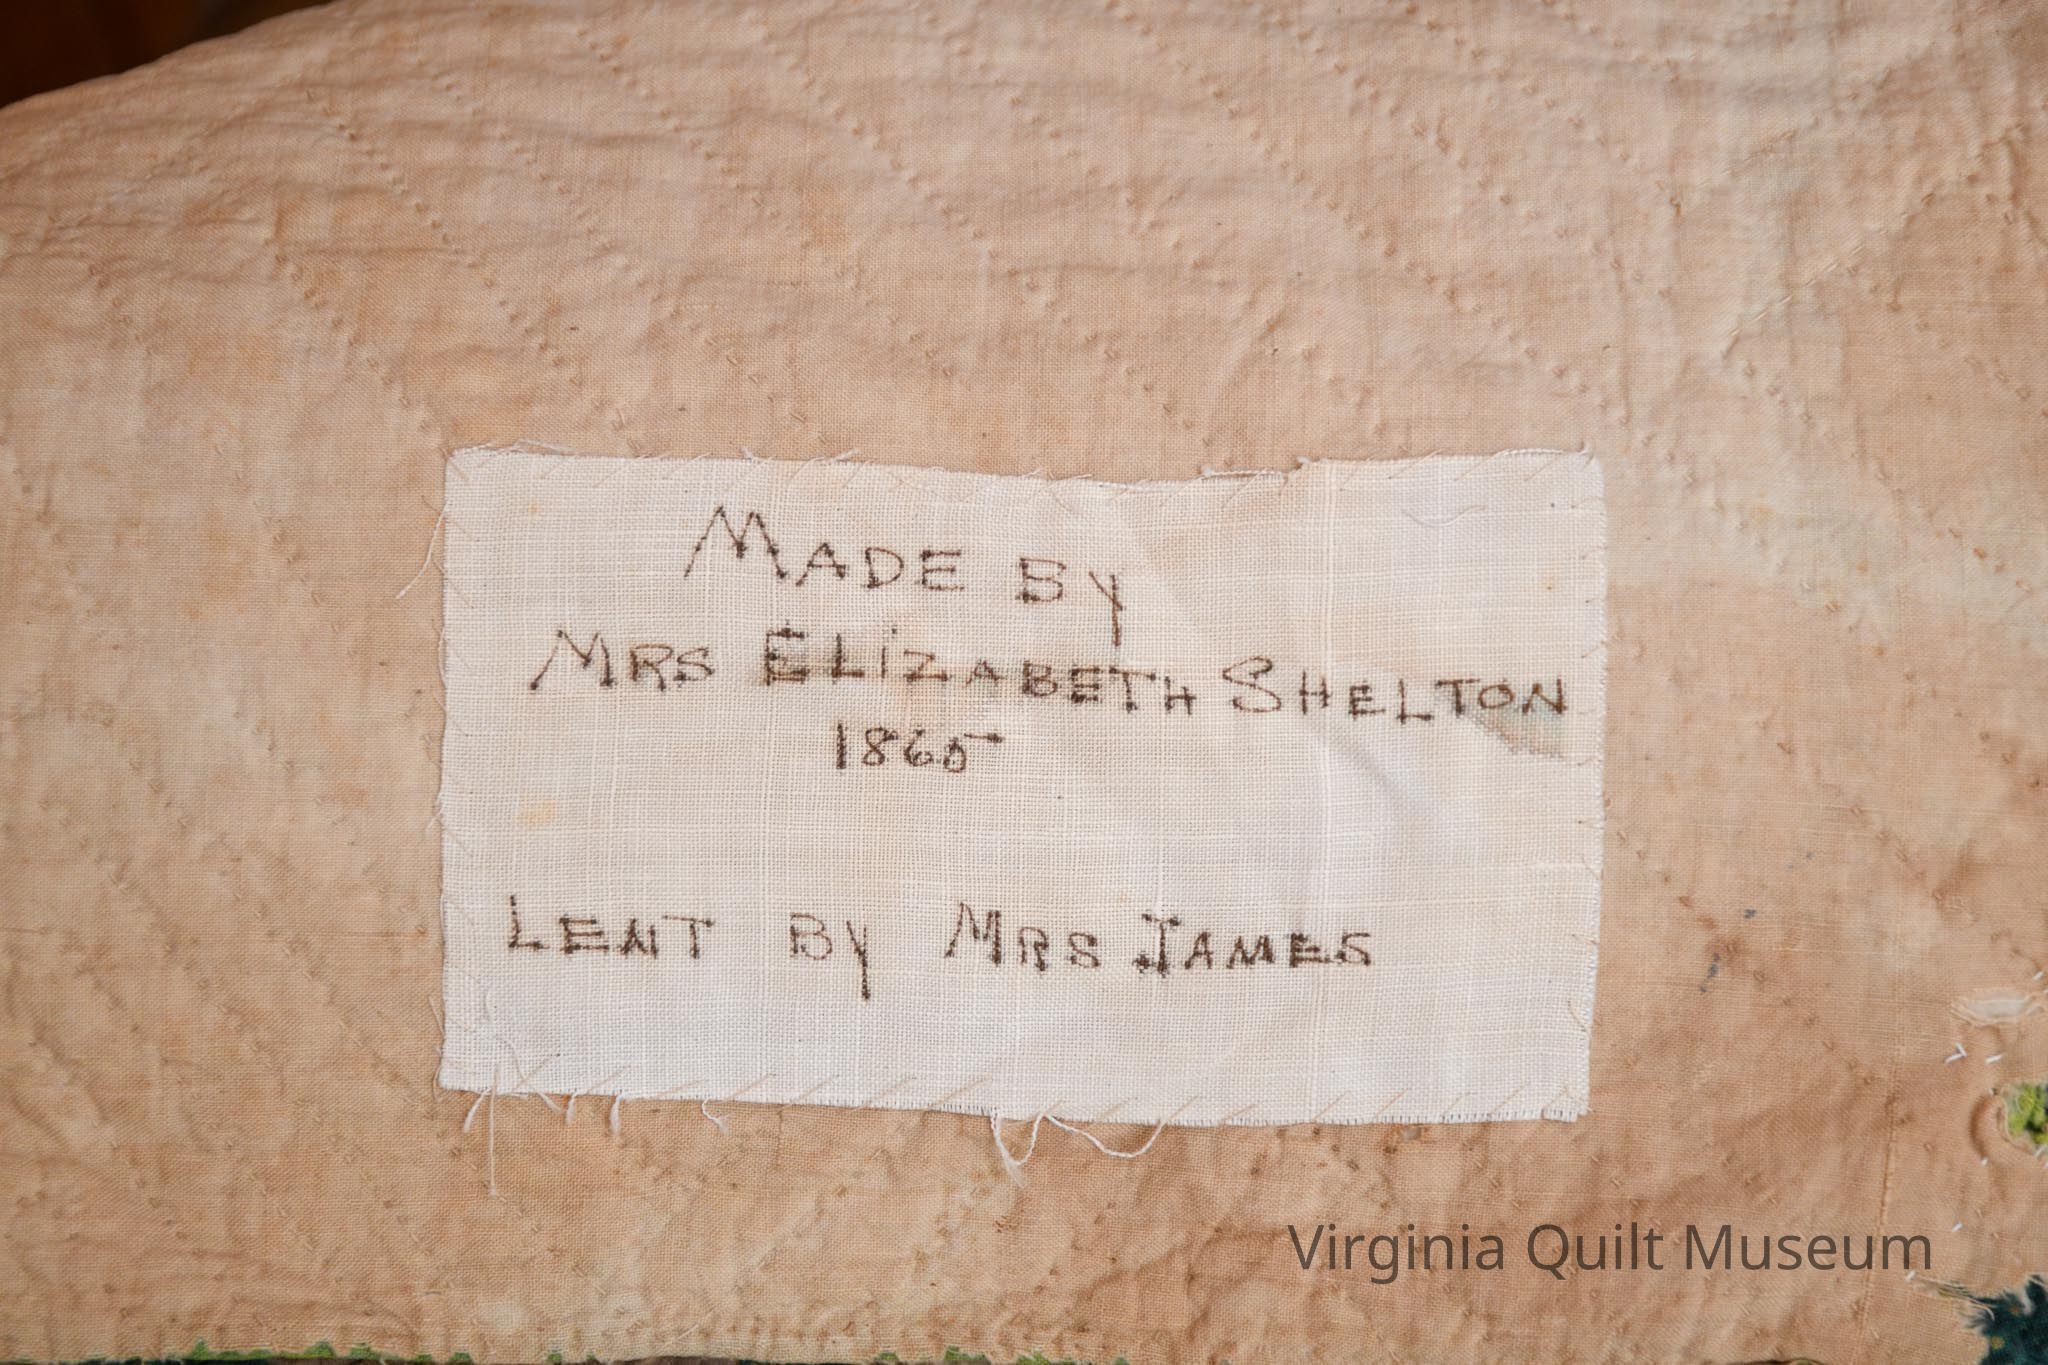 MADE BY
MRS ELiZABETH SHELTON
1865
LENT BY MRS JAMES
Virginia Quilt Museum